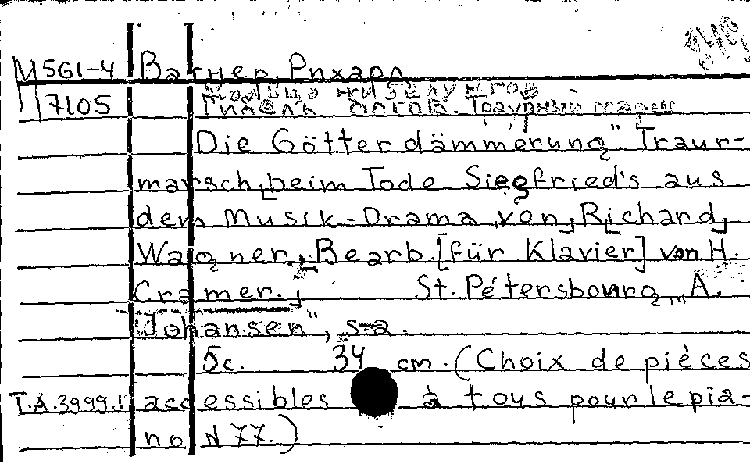 М561-4 Вагнер, Рихард
7105 Гибель богов. Траурный марш
Die Götterdämmerung" Traur-
marsch beim Tode Siegfried's aus
dem Musik-Drama von Richard
Wagner. Bearb. [für Klavier] von H.
Cramer. St. Pétersbourg, "A.
Johansen", s.a.
5с. 34 cm. (Choix de pièces
T.A.3999.1 accessibles à tous pour le pia-
no N 77.)